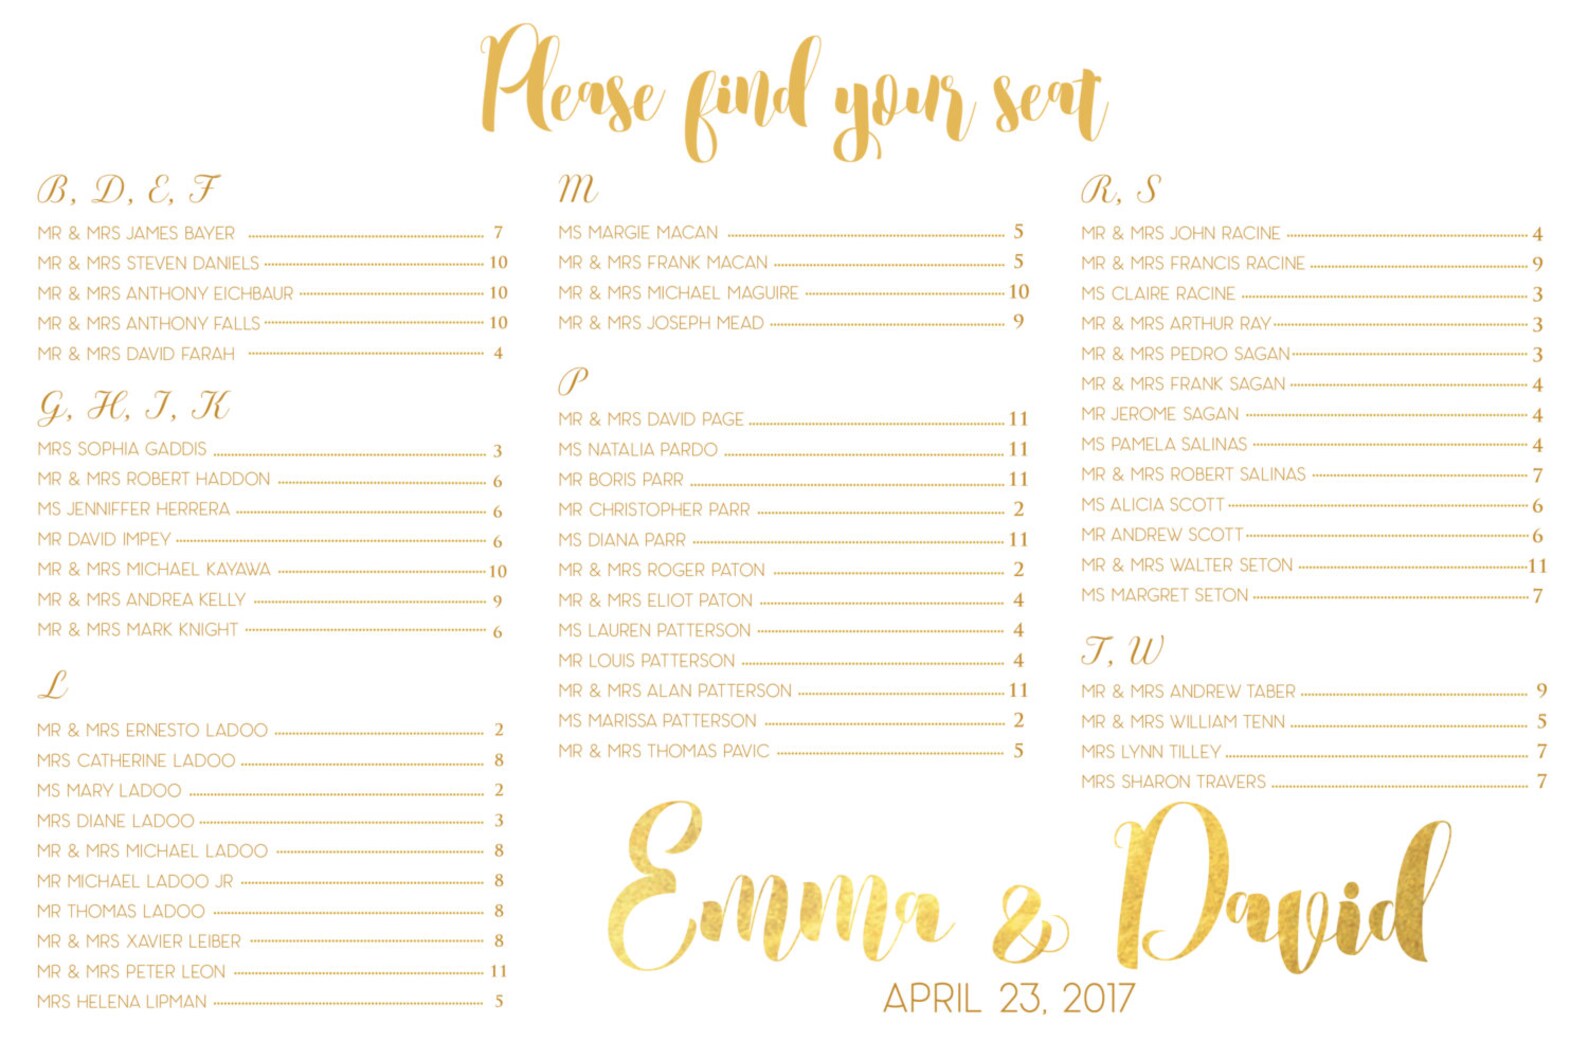 Please find your seat
B, D, E, F
MR & MRS JAMES BAYER 7
MR & MRS STEVEN DANIELS 10
MR & MRS ANTHONY EICHBAUR 10
MR & MRS ANTHONY FALLS 10
MR & MRS DAVID FARAH 4
G, H, I, K
MRS SOPHIA GADDIS 3
MR & MRS ROBERT HADDON 6
MS JENNIFFER HERRERA 6
MR DAVID IMPEY 6
MR & MRS MICHAEL KAYAWA 10
MR & MRS ANDREA KELLY 9
MR & MRS MARK KNIGHT 6
L
MR & MRS ERNESTO LADOO 2
MRS CATHERINE LADOO 8
MS MARY LADOO 2
MRS DIANE LADOO 3
MR & MRS MICHAEL LADOO 8
MR MICHAEL LADOO JR 8
MR THOMAS LADOO 8
MR & MRS XAVIER LEIBER 8
MR & MRS PETER LEON 11
MRS HELENA LIPMAN 5
M
MS MARGIE MACAN 5
MR & MRS FRANK MACAN 5
MR & MRS MICHAEL MAGUIRE 10
MR & MRS JOSEPH MEAD 9
P
MR & MRS DAVID PAGE 11
MS NATALIA PARDO 11
MR BORIS PARR 11
MR CHRISTOPHER PARR 2
MS DIANA PARR 11
MR & MRS ROGER PATON 2
MR & MRS ELIOT PATON 4
MS LAUREN PATTERSON 4
MR LOUIS PATTERSON 4
MR & MRS ALAN PATTERSON 11
MS MARISSA PATTERSON 2
MR & MRS THOMAS PAVIC 5
R, S
MR & MRS JOHN RACINE 4
MR & MRS FRANCIS RACINE 9
MS CLAIRE RACINE 3
MR & MRS ARTHUR RAY 3
MR & MRS PEDRO SAGAN 3
MR & MRS FRANK SAGAN 4
MR JEROME SAGAN 4
MS PAMELA SALINAS 4
MR & MRS ROBERT SALINAS 7
MS ALICIA SCOTT 6
MR ANDREW SCOTT 6
MR & MRS WALTER SETON 11
MS MARGRET SETON 7
T, W
MR & MRS ANDREW TABER 9
MR & MRS WILLIAM TENN 5
MRS LYNN TILLEY 7
MRS SHARON TRAVERS 7
Emma & David
APRIL 23, 2017